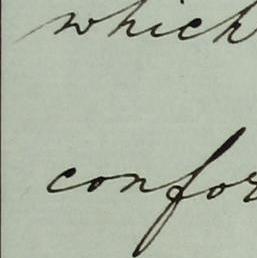 which
confor